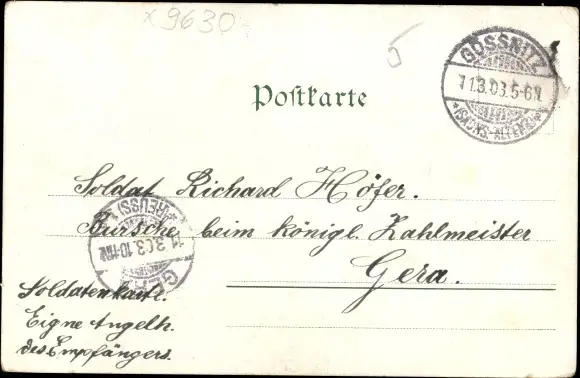 x 9630.-
5
GÖSSNITZ
11.3.03.5-6N.
*(SACHS.-ALTENB.)*
Postkarte
Soldat Richard Höfer.
Bursche beim königl. Zahlmeister
Gera.
(REUSS)
11.3.03.10-11N.
GERA
Soldatenkart.
Eigne Angelh.
des Empfängers.